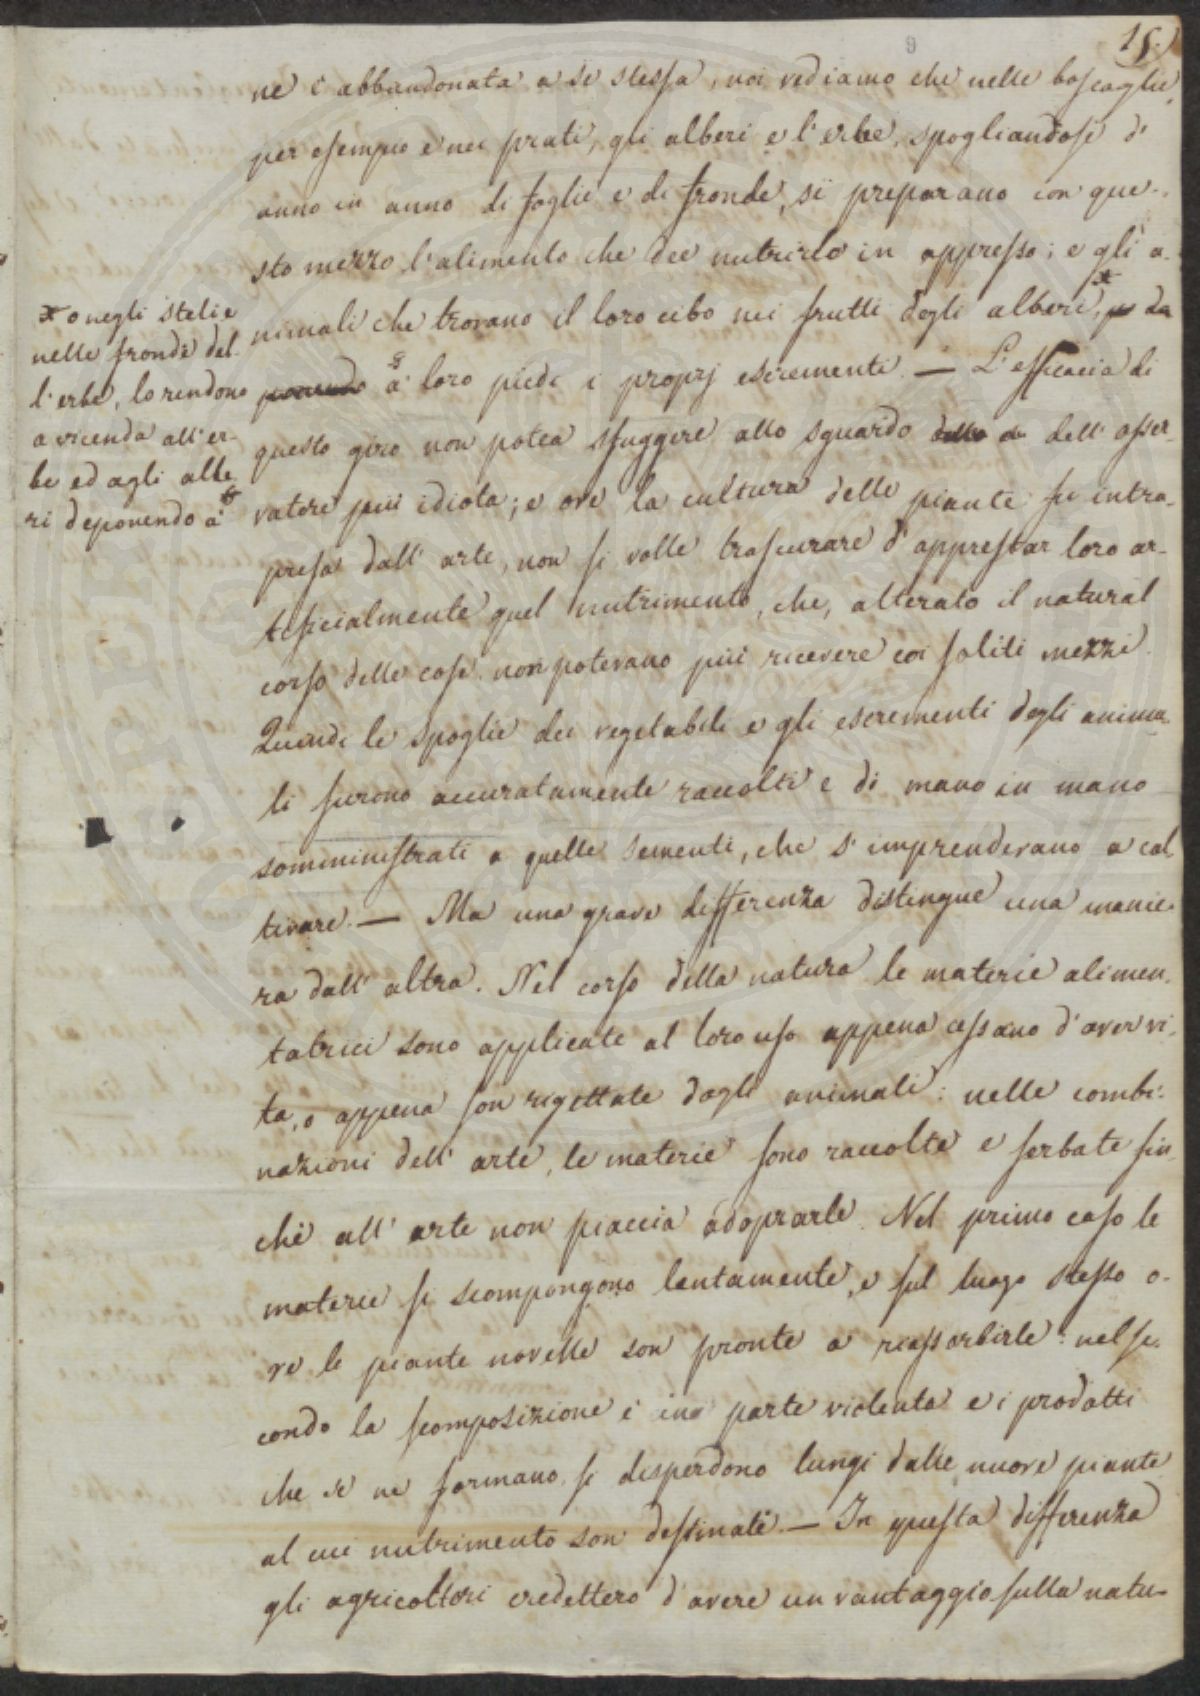 9
15.
ne è abbandonata a se stessa, noi vediamo che nelle boscaglie,
per esempio e nei prati, gli alberi e l'erbe, spogliandosi d'
anno in anno di foglie e di fronde, si preparano con que-
sto mezzo l'alimento che dee nutrirle in appresso; e gli a-
nimali che trovano il loro cibo nei frutti degli alberi,
x o negli steli e
nelle fronde del-
l'erbe, lo rendono
a vicenda all'er-
be ed agli albe-
ri deponendo a'
a' loro piedi i proprj escrementi. — L'efficacia di
questo giro non potea sfuggire allo sguardo dell' osser-
vatore più idiota; e ove la cultura delle piante fu intra-
presa dall' arte, non si volle trascurare d'apprestar loro ar-
tificialmente quel nutrimento, che, alterato il natural
corso delle cose non potevano più ricevere coi soliti mezzi.
Quindi le spoglie dei vegetabili e gli escrementi degli anima-
li furono accuratamente raccolti e di mano in mano
somministrati a quelle sementi, che s'imprendevano a col-
tivare. — Ma una grave differenza distingue una manie-
ra dall' altra. Nel corso della natura le materie alimen-
tatrici sono applicate al loro uso appena cessano d'aver vi-
ta, o appena son rigettate dagli animali: nelle combi-
nazioni dell' arte, le materie sono raccolte e serbate fin-
chè all' arte non piaccia adoprarle. Nel primo caso le
materie si scompongono lentamente, e sul luogo stesso o-
ve le piante novelle son pronte a riassorbirle: nel se-
condo la scomposizione è in parte violenta e i prodotti
che se ne formano si disperdono lungi dalle nuove piante
al cui nutrimento son destinati. — In questa differenza
gli agricoltori credettero d'avere un vantaggio sulla natu-